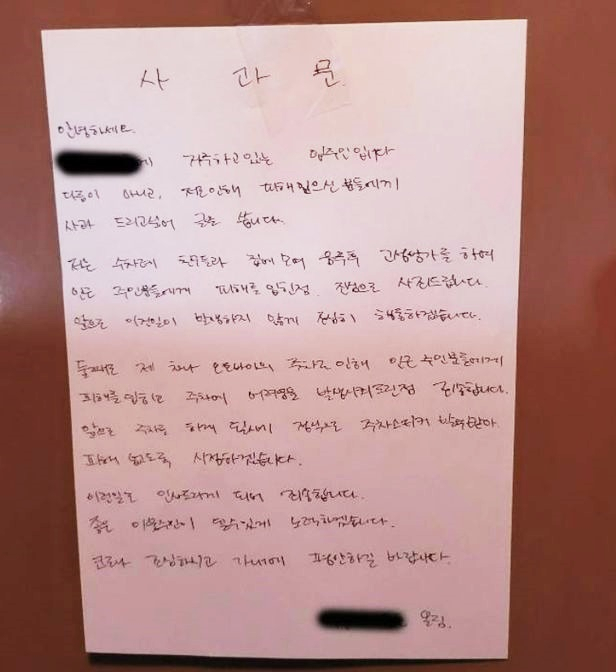 사 과 문.
안녕하세요.
에 거주하고있는 입주민입니다
다름이 아니고, 저로인해 피해입으신분들에게
사과 드리고싶어 글을 씁니다.
저는 수차례 친구들과 집에 모여 음주후 고성방가를 하여
인근 주민분들에게 피해를 입힌점 진심으로 사죄드립니다.
앞으로 이런일이 발생하지 않게 조심히 행동하겠습니다.
둘째로 제 차나 오토바이의 주차로인해 인근 주민분들에게
피해를 입히고 주차에 어려움을 발생시켜드린점 죄송합니다.
앞으로 주차를 하게 될시에 정식으로 주차스티커 발부받아
피해 없도록 시정하겠습니다.
이런일로 인사드리게 되어 죄송합니다.
좋은 이웃주민이 될수있게 노력하겠습니다.
코로나 조심하시고 가내에 평안하길 바랍니다.
올림.